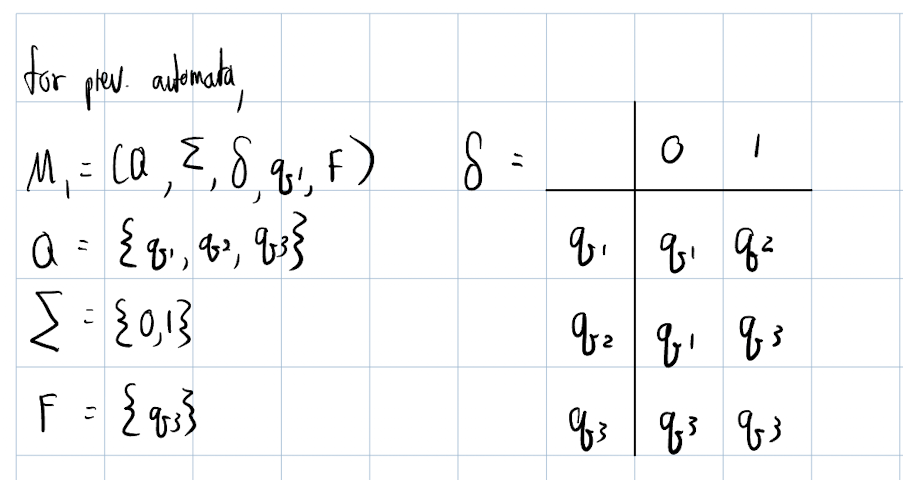 for prev. automata,
M₁ = (Q, Σ, δ, q₁, F)
Q = {q₁, q₂, q₃}
Σ = {0,1}
F = {q₃}
δ =
0 1
q₁ q₁ q₂
q₂ q₁ q₃
q₃ q₃ q₃